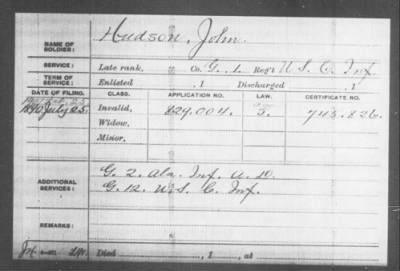 NAME OF SOLDIER: Hudson, John
SERVICE: Late rank, Co. G. 1. Reg't U. S. C. Inf.
TERM OF SERVICE: Enlisted , 1 Discharged , 1
DATE OF FILING. CLASS. APPLICATION NO. LAW. CERTIFICATE NO.
1890 July 25. Invalid, 829.004. 743.826.
Widow,
Minor,
ADDITIONAL SERVICES: G. 2. Ala. Inf. A. D.
G. 12. U. S. C. Inf.
REMARKS:
Died , 1 , at